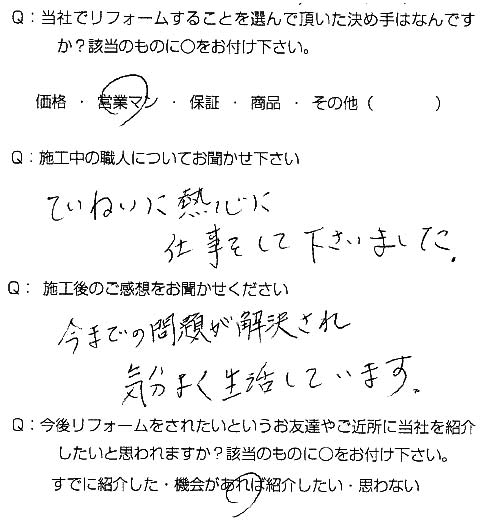 Q：当社でリフォームすることを選んで頂いた決め手はなんです
か？該当のものに〇をお付け下さい。
価格 ・ 営業マン ・ 保証 ・ 商品 ・ その他（　　　）
Q：施工中の職人についてお聞かせ下さい
ていねいに熱心に
仕事をして下さいました。
Q： 施工後のご感想をお聞かせください
今までの問題が解決され
気分よく生活しています。
Q：今後リフォームをされたいというお友達やご近所に当社を紹介
したいと思われますか？該当のものに〇をお付け下さい。
すでに紹介した・機会があれば紹介したい・思わない